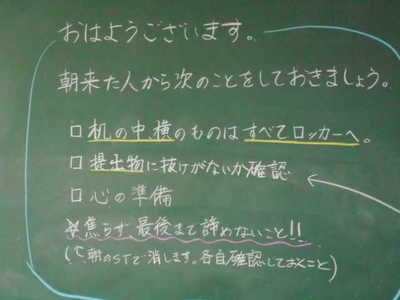 おはようございます。
朝来た人から次のことをしておきましょう。
□ 机の中、横のものは すべてロッカーへ。
□ 提出物に抜けがないか確認
□ 心の準備
☆焦らず、最後まで諦めないこと!!
(↑朝のSTで消します。各自確認しておくこと)